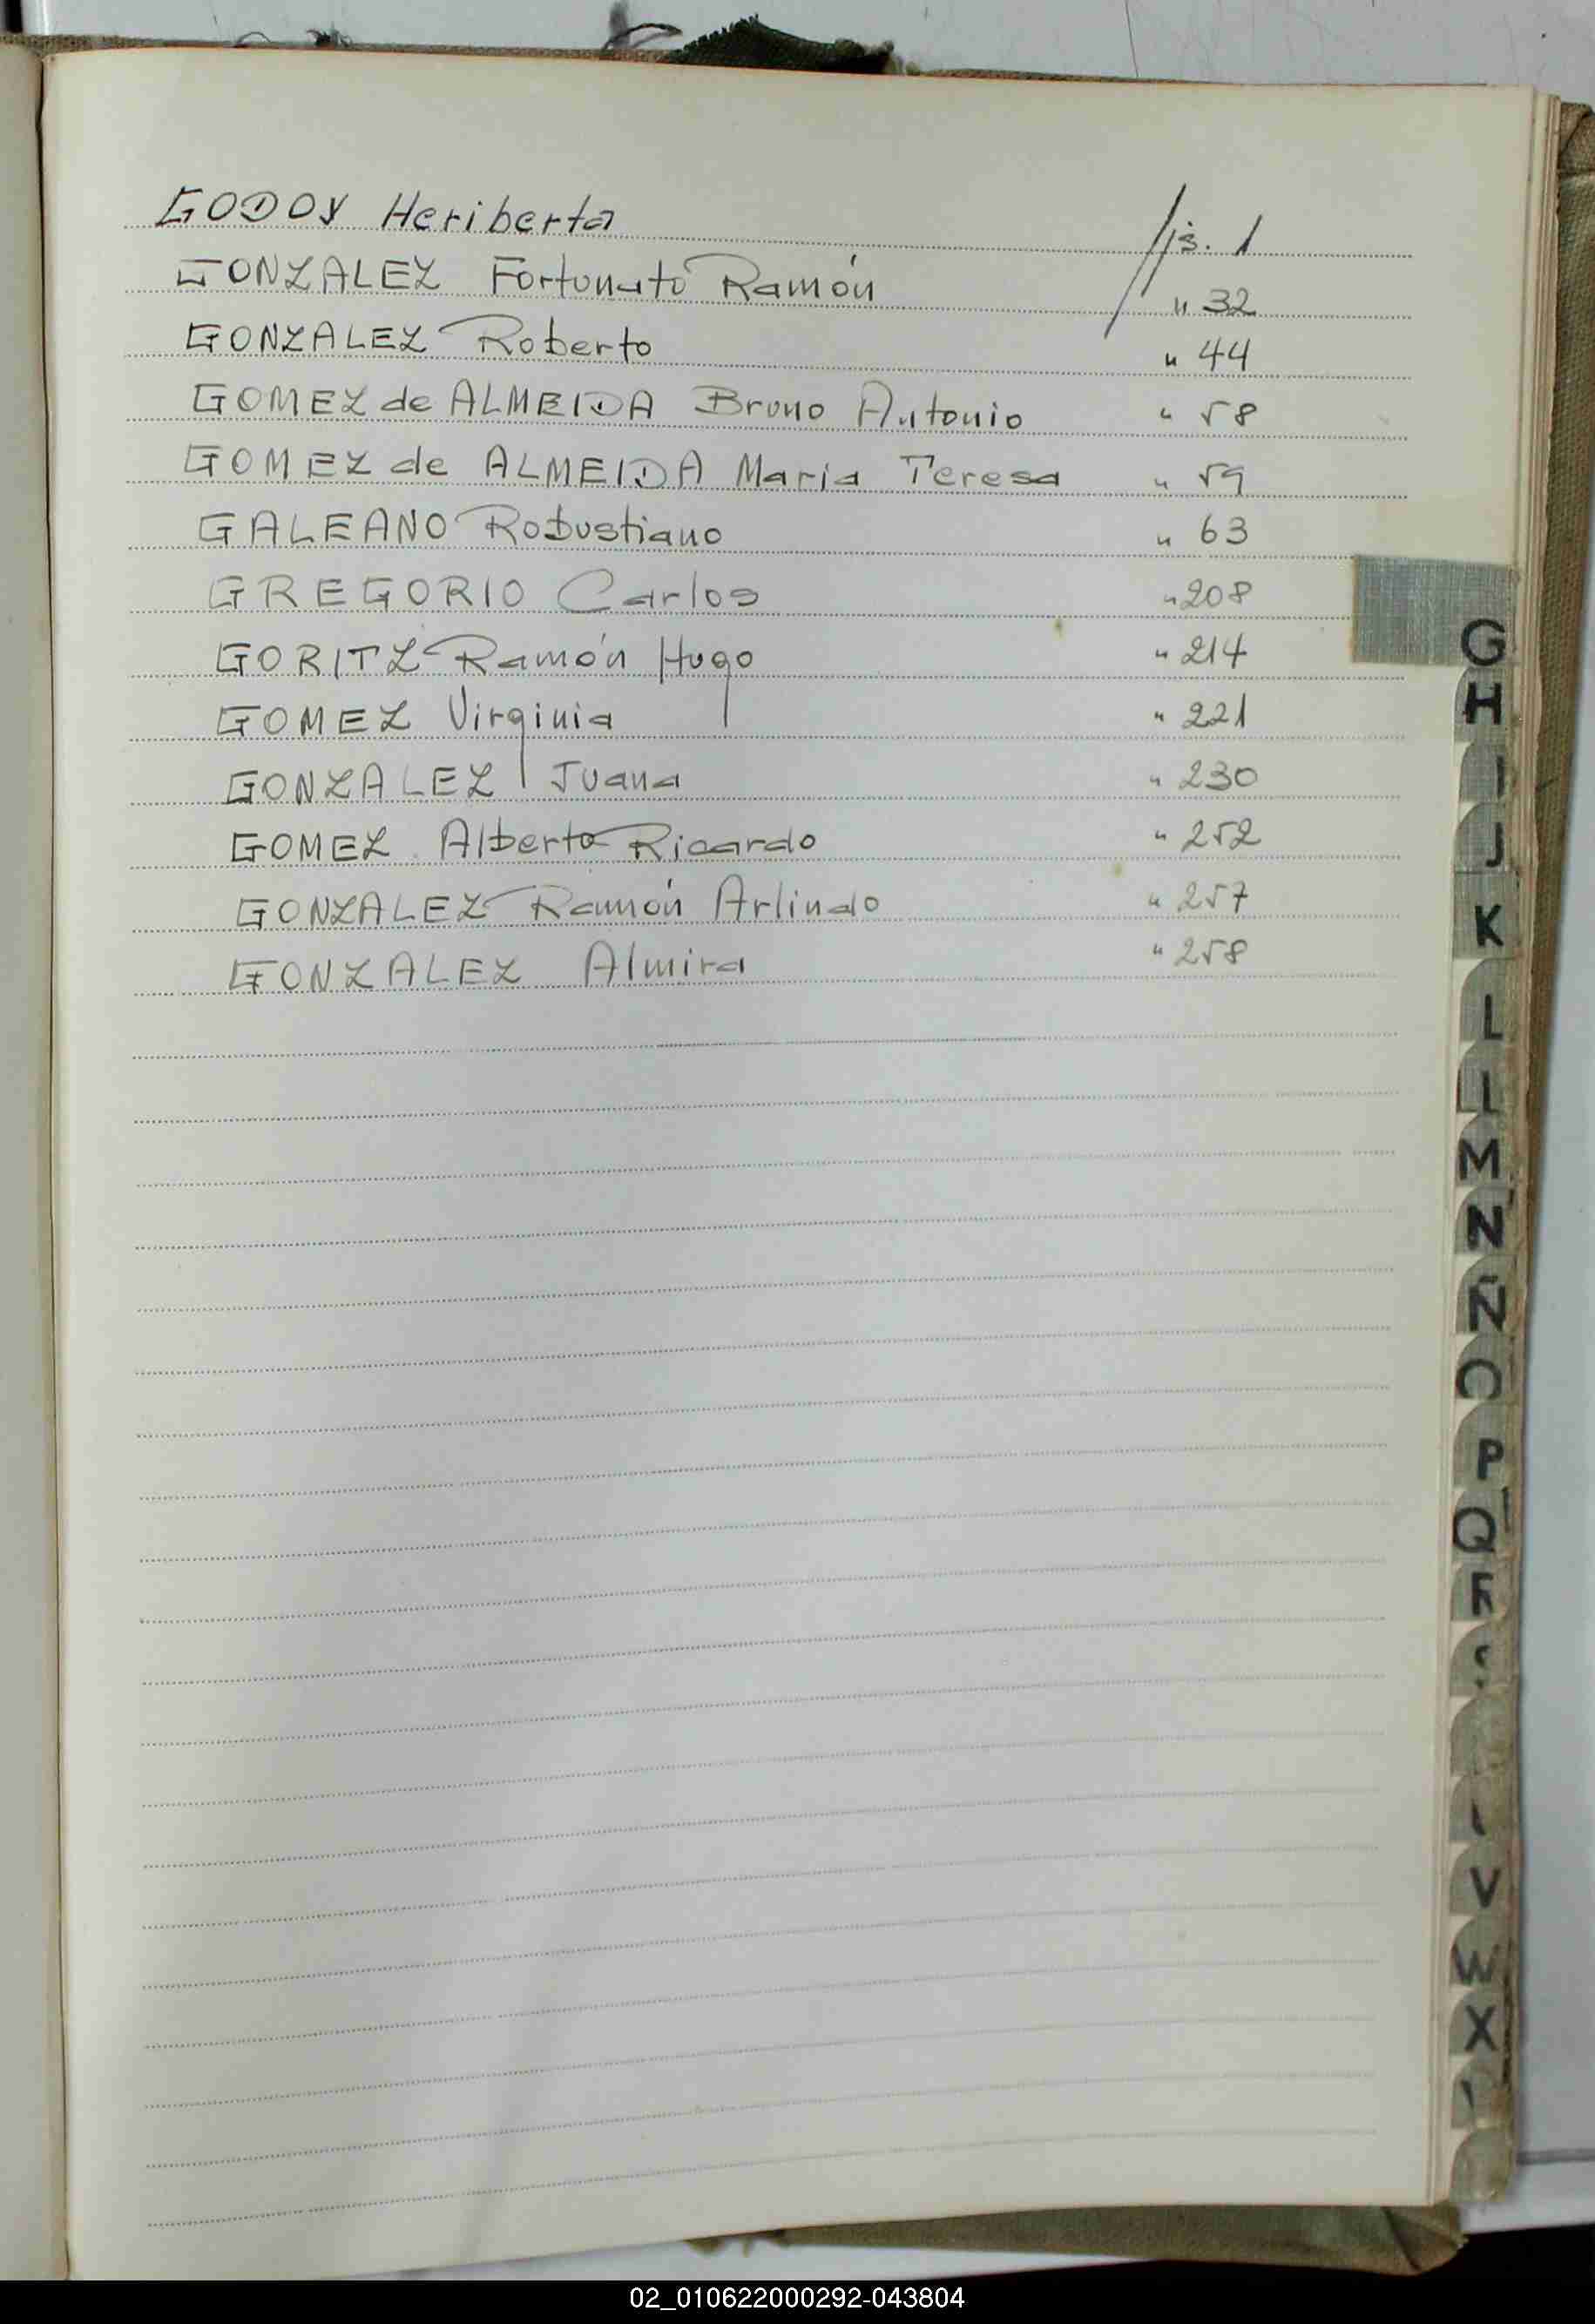 GODOY Heriberta fjs. 1
GONZALEZ Fortunato Ramón " 32
GONZALEZ Roberto " 44
GOMEZ de ALMEIDA Bruno Antonio " 58
GOMEZ de ALMEIDA Maria Teresa " 59
GALEANO Robustiano " 63
GREGORIO Carlos " 208
GORITZ Ramón Hugo " 214
GOMEZ Virginia " 221
GONZALEZ Juana " 230
GOMEZ Alberto Ricardo " 252
GONZALEZ Ramón Arlindo " 257
GONZALEZ Almira " 258
G
H
I
J
K
L
M
N
Ñ
O
P
Q
R
V
W
X
02_010622000292-043804